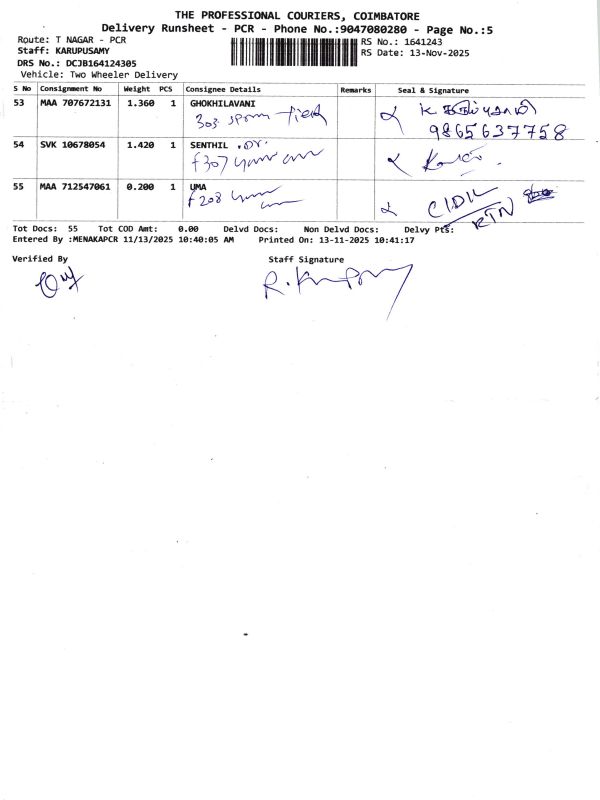 THE PROFESSIONAL COURIERS, COIMBATORE
Delivery Runsheet - PCR - Phone No.:9047080280 - Page No.:5
Route: T NAGAR - PCR
RS No.: 1641243
Staff: KARUPUSAMY
RS Date: 13-Nov-2025
DRS No.: DCJB164124305
Vehicle: Two Wheeler Delivery
S No Consignment No Weight PCS Consignee Details Remarks Seal & Signature
53 MAA 707672131 1.360 1 GHOKHILAVANI
303
9865637758
54 SVK 10678054 1.420 1 SENTHIL .Dr.
F307
55 MAA 712547061 0.200 1 UMA
F208
CIDIL
RTN
Tot Docs: 55 Tot COD Amt: 0.00 Delvd Docs: Non Delvd Docs: Delvy Pts:
Entered By :MENAKAPCR 11/13/2025 10:40:05 AM Printed On: 13-11-2025 10:41:17
Verified By Staff Signature